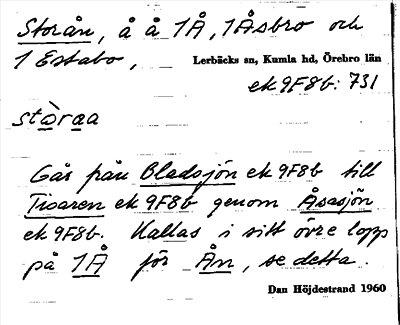 Storån, å å 1Å, 1Åsbro och
1 Estabo, Lerbäcks sn, Kumla hd, Örebro län
ek 9F8b: 731
stòraa
Går från Bladsjön ek 9F8b till
Tisaren ek 9F8b genom Åsasjön
ek 9F8b. Kallas i sitt övre lopp
på 1Å för Ån, se detta.
Dan Höjdestrand 1960